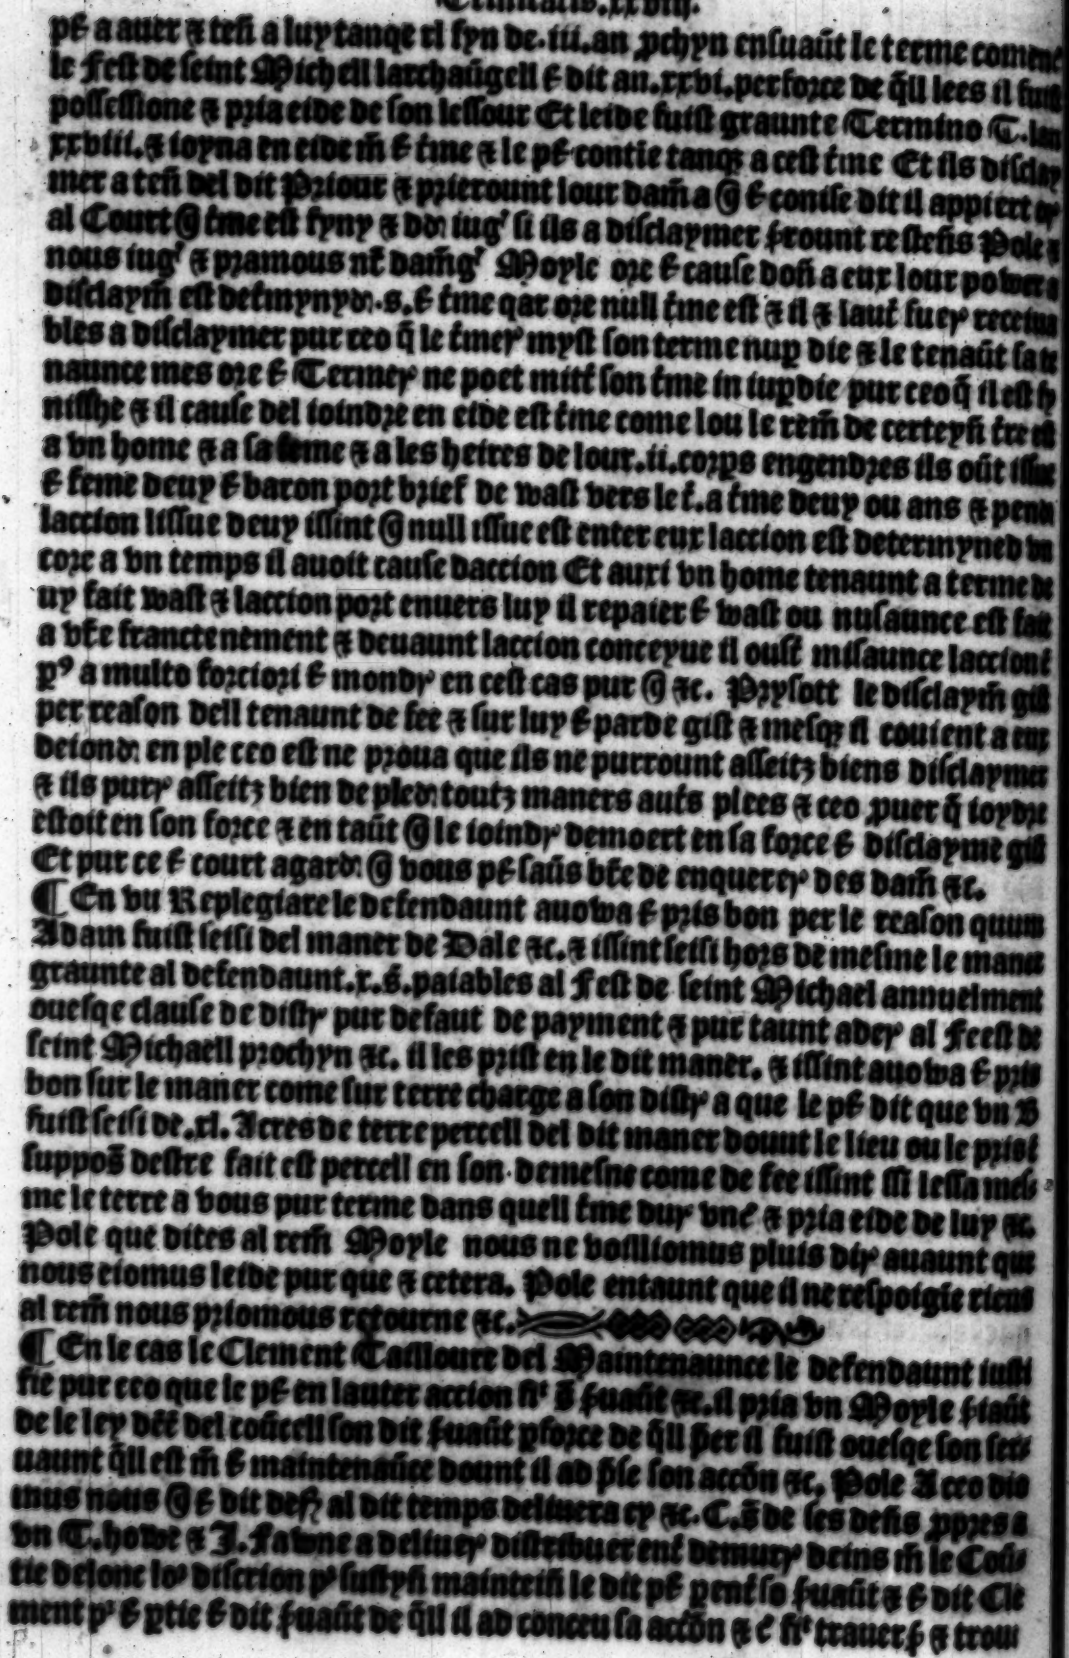 Trinitatis.xxviij.
pł a auer ⁊ teñ a luy tanqe el fyn de.iii.an ꝓchyn ensuaūt le terme comenc
le Fest de seint Michell larchaūgell ł dit an.xxvi.per force de q̄ll lees il fuist
possessione ⁊ pria eide de son lessour Et leide fuist graunte Termino T.lan
xxviii.⁊ ioyna en eide m̄ ł t̄me ⁊ le pł contie tanqꝫ a cest t̄me Et ils disclay
mer a teñ del dit Priour ⁊ prierount lour dam̄a q̃ ł contise dit il appiert cy
al Court q̃ t̄me est fyny ⁊ dd iugꝰ si ils a disclaymer ẜrount resteñs Pole ⁊
nous iugꝰ ⁊ pramous nr̄ dam̄gꝰ Moyle ore ł cause doñ a eux lour power a
disclaym̄ est det̄mynyd.s.ł t̄me qar ore null t̄me est ⁊ il ⁊ laut̄ fuerꝰ receiua
bles a disclaymer pur ceo q̄ le t̄merꝰ myst son terme nup die ⁊ le tenaūt sa te
naunce mes ore ł Termerꝰ ne poet mitt̄ son t̄me in iupdie pur ceo q̄ il est fy
nisshe ⁊ il cause del ioindre en eide est t̄me come lou le rem̄ de certeyñ t̄re est
a vn home ⁊ a sa feme ⁊ a les heires de lour.ii.corps engendres ils oūt issue
ł feme deuy ł baron port brief de wast vers le t̄.a t̄me deuy ou ans ⁊ pend
laccion lissue deuy issint q̃ null issue est enter eux laccion est determyned vn
core a vn temps il auoit cause daccion Et auxi vn home tenaunt a terme de
uy fait wast ⁊ laccion port enuers luy il repaier ł wast ou nusaunce est fait
a vr̄e franctenement ⁊ deuaunt laccion conceyue il oust̄ misaunce laccion ł
pꝰ a multo forciori ł mondrꝰ en cest cas pur q̃ ⁊c. Prysott le disclaym̄ gist
per reason dell tenaunt de fee ⁊ sur luy ł parde gist ⁊ mesqꝫ il couient a eux
deiond en ple ceo est ne proua que ils ne purrount asseitꝫ biens disclaymer
⁊ ils purꝰ asseitꝫ bien de pled toutꝫ maners aut̄s plees ⁊ ceo ꝓuer q̄ ioydre
estoit en son force ⁊ en taūt q̃ le ioindrꝰ demoert en sa force ł disclayme gist
Et pur ce ł court agard q̃ vous pł saūs br̄e de enquererꝰ des dam̄ ⁊c.
¶ En vn Replegiare le defendaunt auowa ł pris bon per le reason quun
Adam fuist seisi del maner de Dale ⁊c.⁊ issint seisi hors de mesme le maner
graunte al defendaunt.x.s̄.paiables al Fest de seint Michael annuelment
ouesqe clause de distrꝰ pur defaut de payment ⁊ pur taunt aderꝰ al Feest de
seint Michaell prochyn ⁊c. il les prist en le dit maner. ⁊ issint auowa ł pris
bon sur le maner come sur terre charge a son distrꝰ a que le pł dit que vn B
fuist seisi de.xl.Acres de terre percell del dit maner dount le lieu ou le prist
suppos̄ destre fait est percell en son demesne come de fee issint ssi lessa mes
me le terre a vous pur terme dans quell t̄me durꝰ vnc̄ ⁊ pria eide de luy ⁊c.
Pole que dites al rem̄ Moyle nous ne voilliomus pluis dirꝰ auaunt que
nous eiomus leide pur que ⁊ cetera. Pole entaunt que il ne respoigñe riens
al rem̄ nous priomous retourne ⁊c.
¶ En le cas le Clement Taillourt del Maintenaunce le defendaunt iusti
fie pur ceo que le pł en lauter accion fiꝰ s̄ ẜuaūt ⁊c.il pria vn Moyle ẜiaūt
de le ley dēē del coūcell son dit ẜuaūt ꝑforce de q̄ll p̄er il fuist ouesqe son ser
uaunt q̄ll est m̄ ł maintenaūce dount il ad p̄se son accōn ⁊c. Pole A ceo dio
mus nous q̃ ł dit def al dit temps deliuera cy ⁊c.C.s̄ de ses deñs ꝓpres a
vn T.howe ⁊ J.Fawne a deliuerꝰ distribuer ent̄ demurꝰ deins m̄ le Coū
tie delonc lorꝰ discrion pꝰ sustyñ mainteiñ le dit pł ꝑent̄ so ẜuaūt ⁊ ł dit Cle
ment pꝰ ł ptie ł dit ẜuaūt de q̄ll il ad conceu sa accōn ⁊ c̄ fiꝰ trauerẜ ⁊ trou